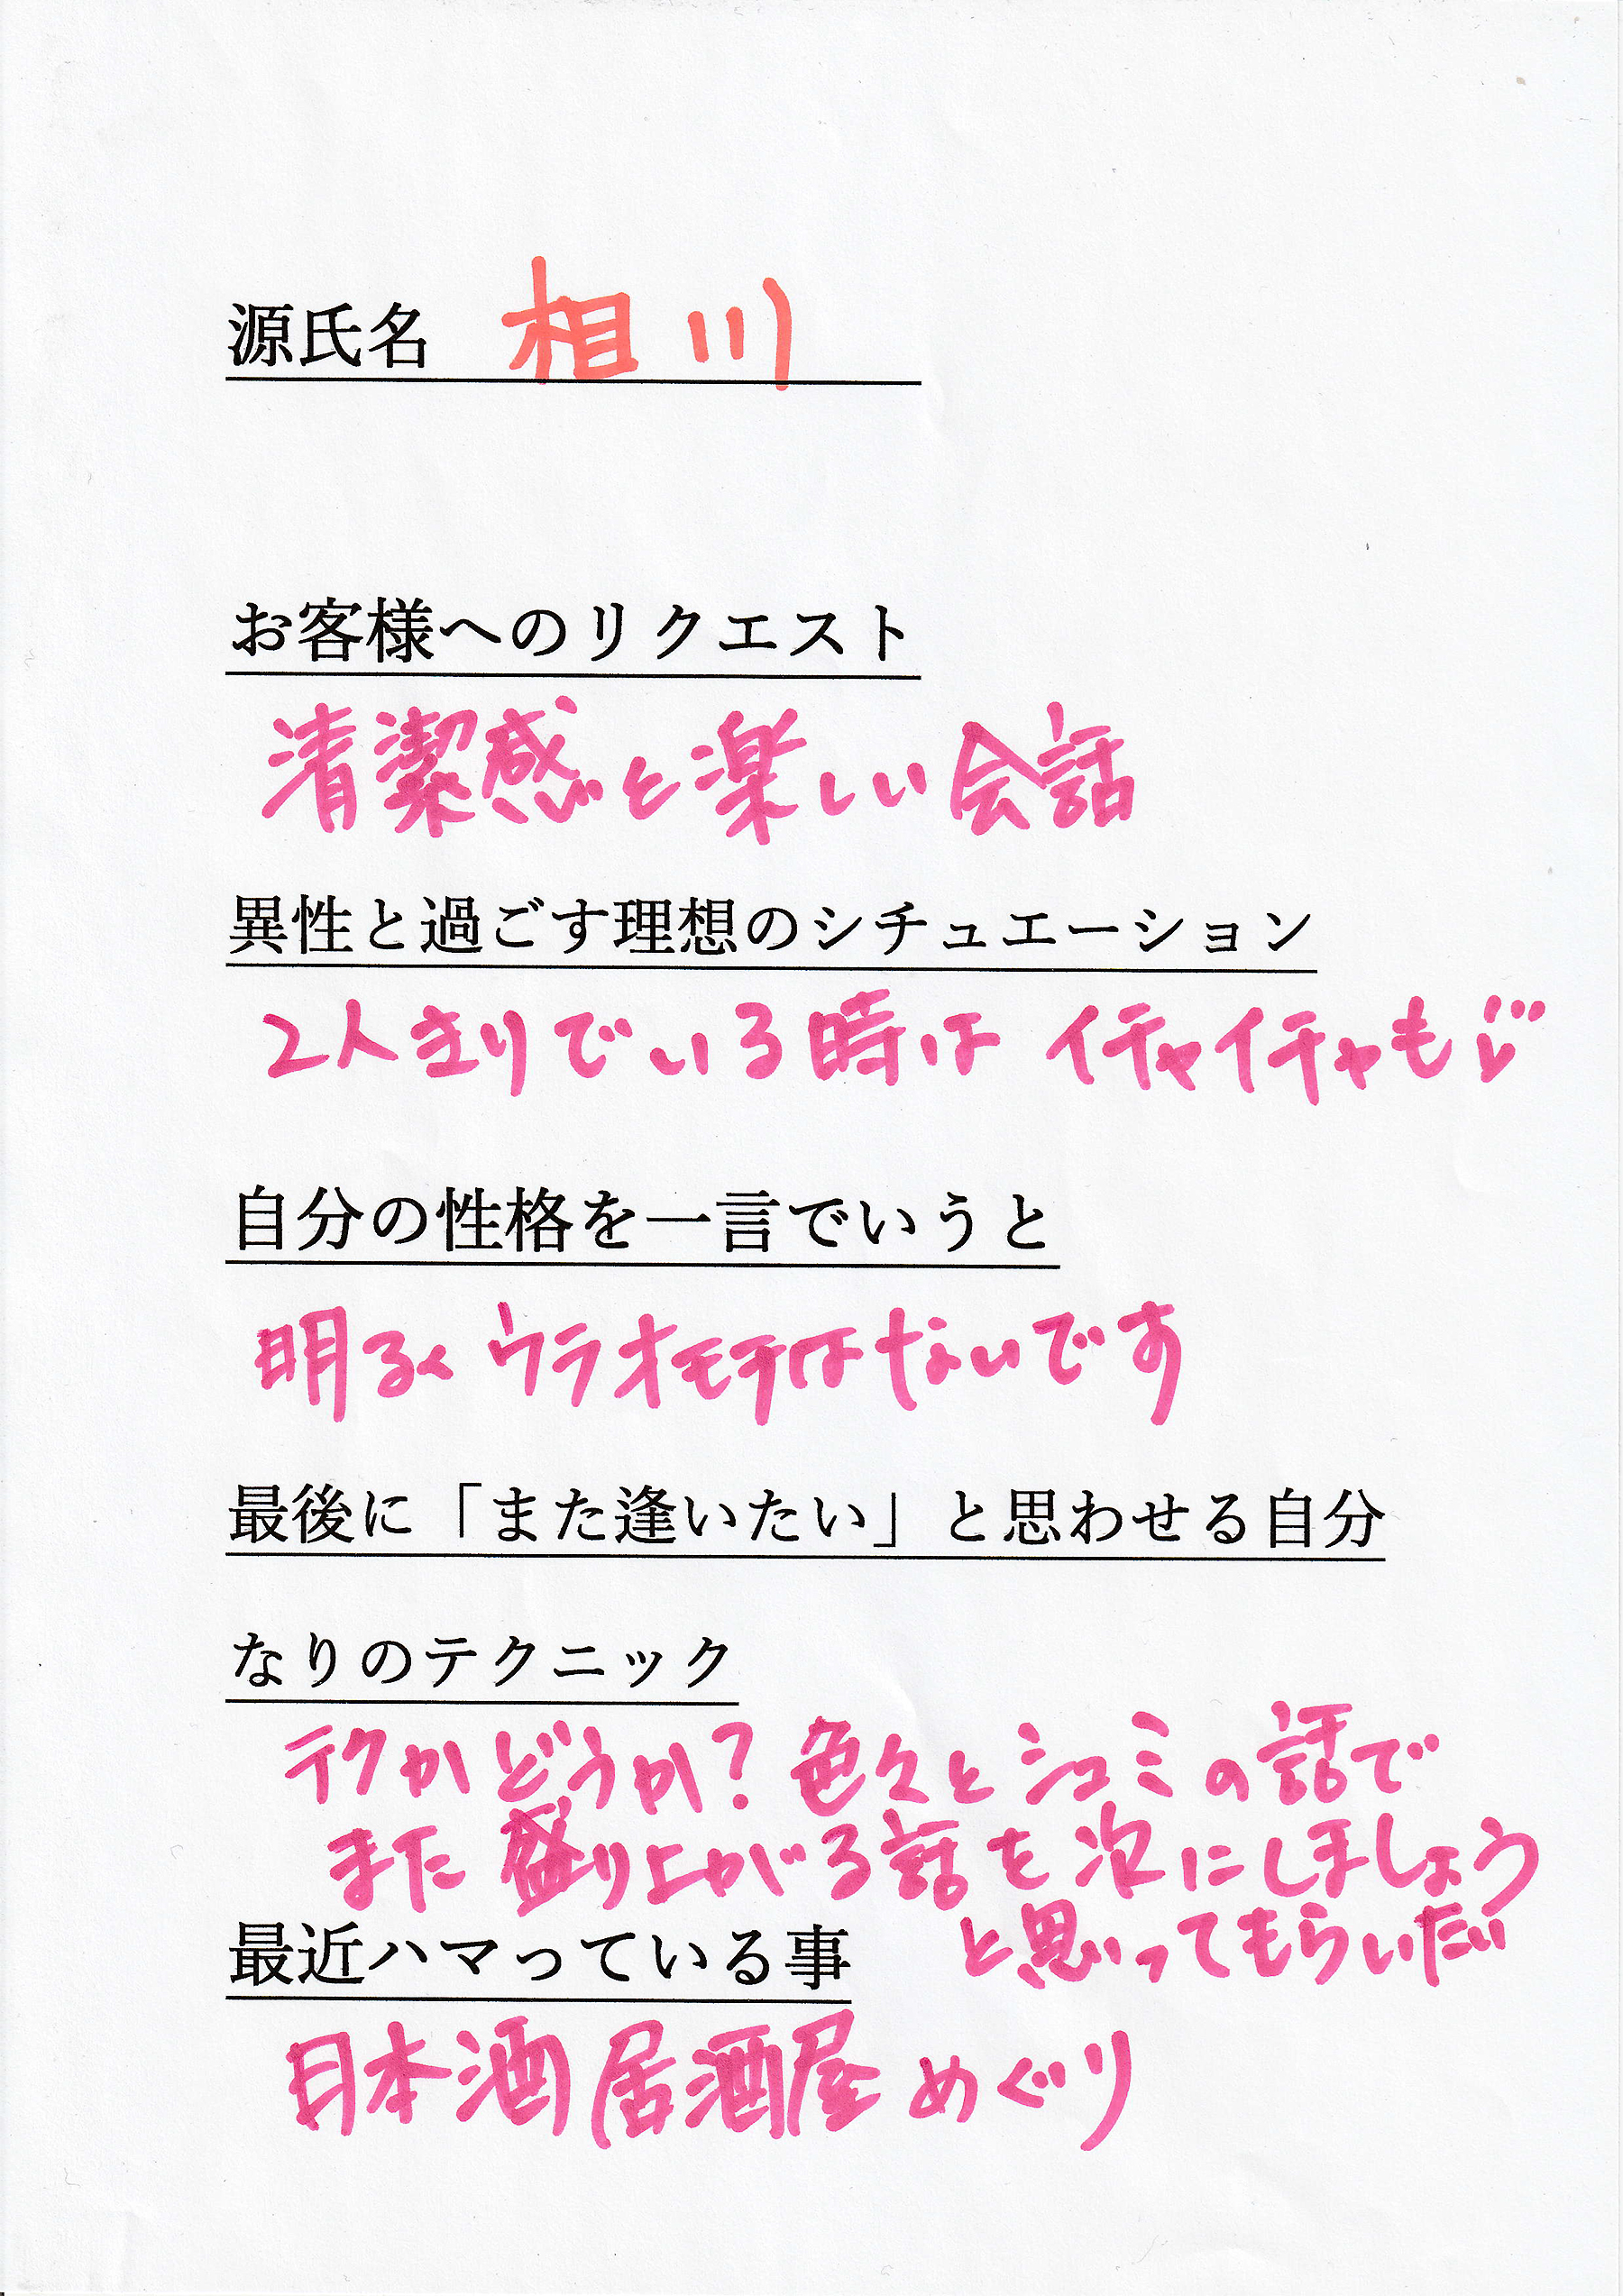 源氏名 相川
お客様へのリクエスト
清潔感と楽しい会話
異性と過ごす理想のシチュエーション
2人きりでいる時は イチャイチャも
自分の性格を一言でいうと
明るく ウラオモテはないです
最後に「また逢いたい」と思わせる自分
なりのテクニック
テクかどうか?色々とシュミの話で
また盛り上がる話を次にしましょう
と思ってもらいたい
最近ハマっている事
日本酒 居酒屋めぐり